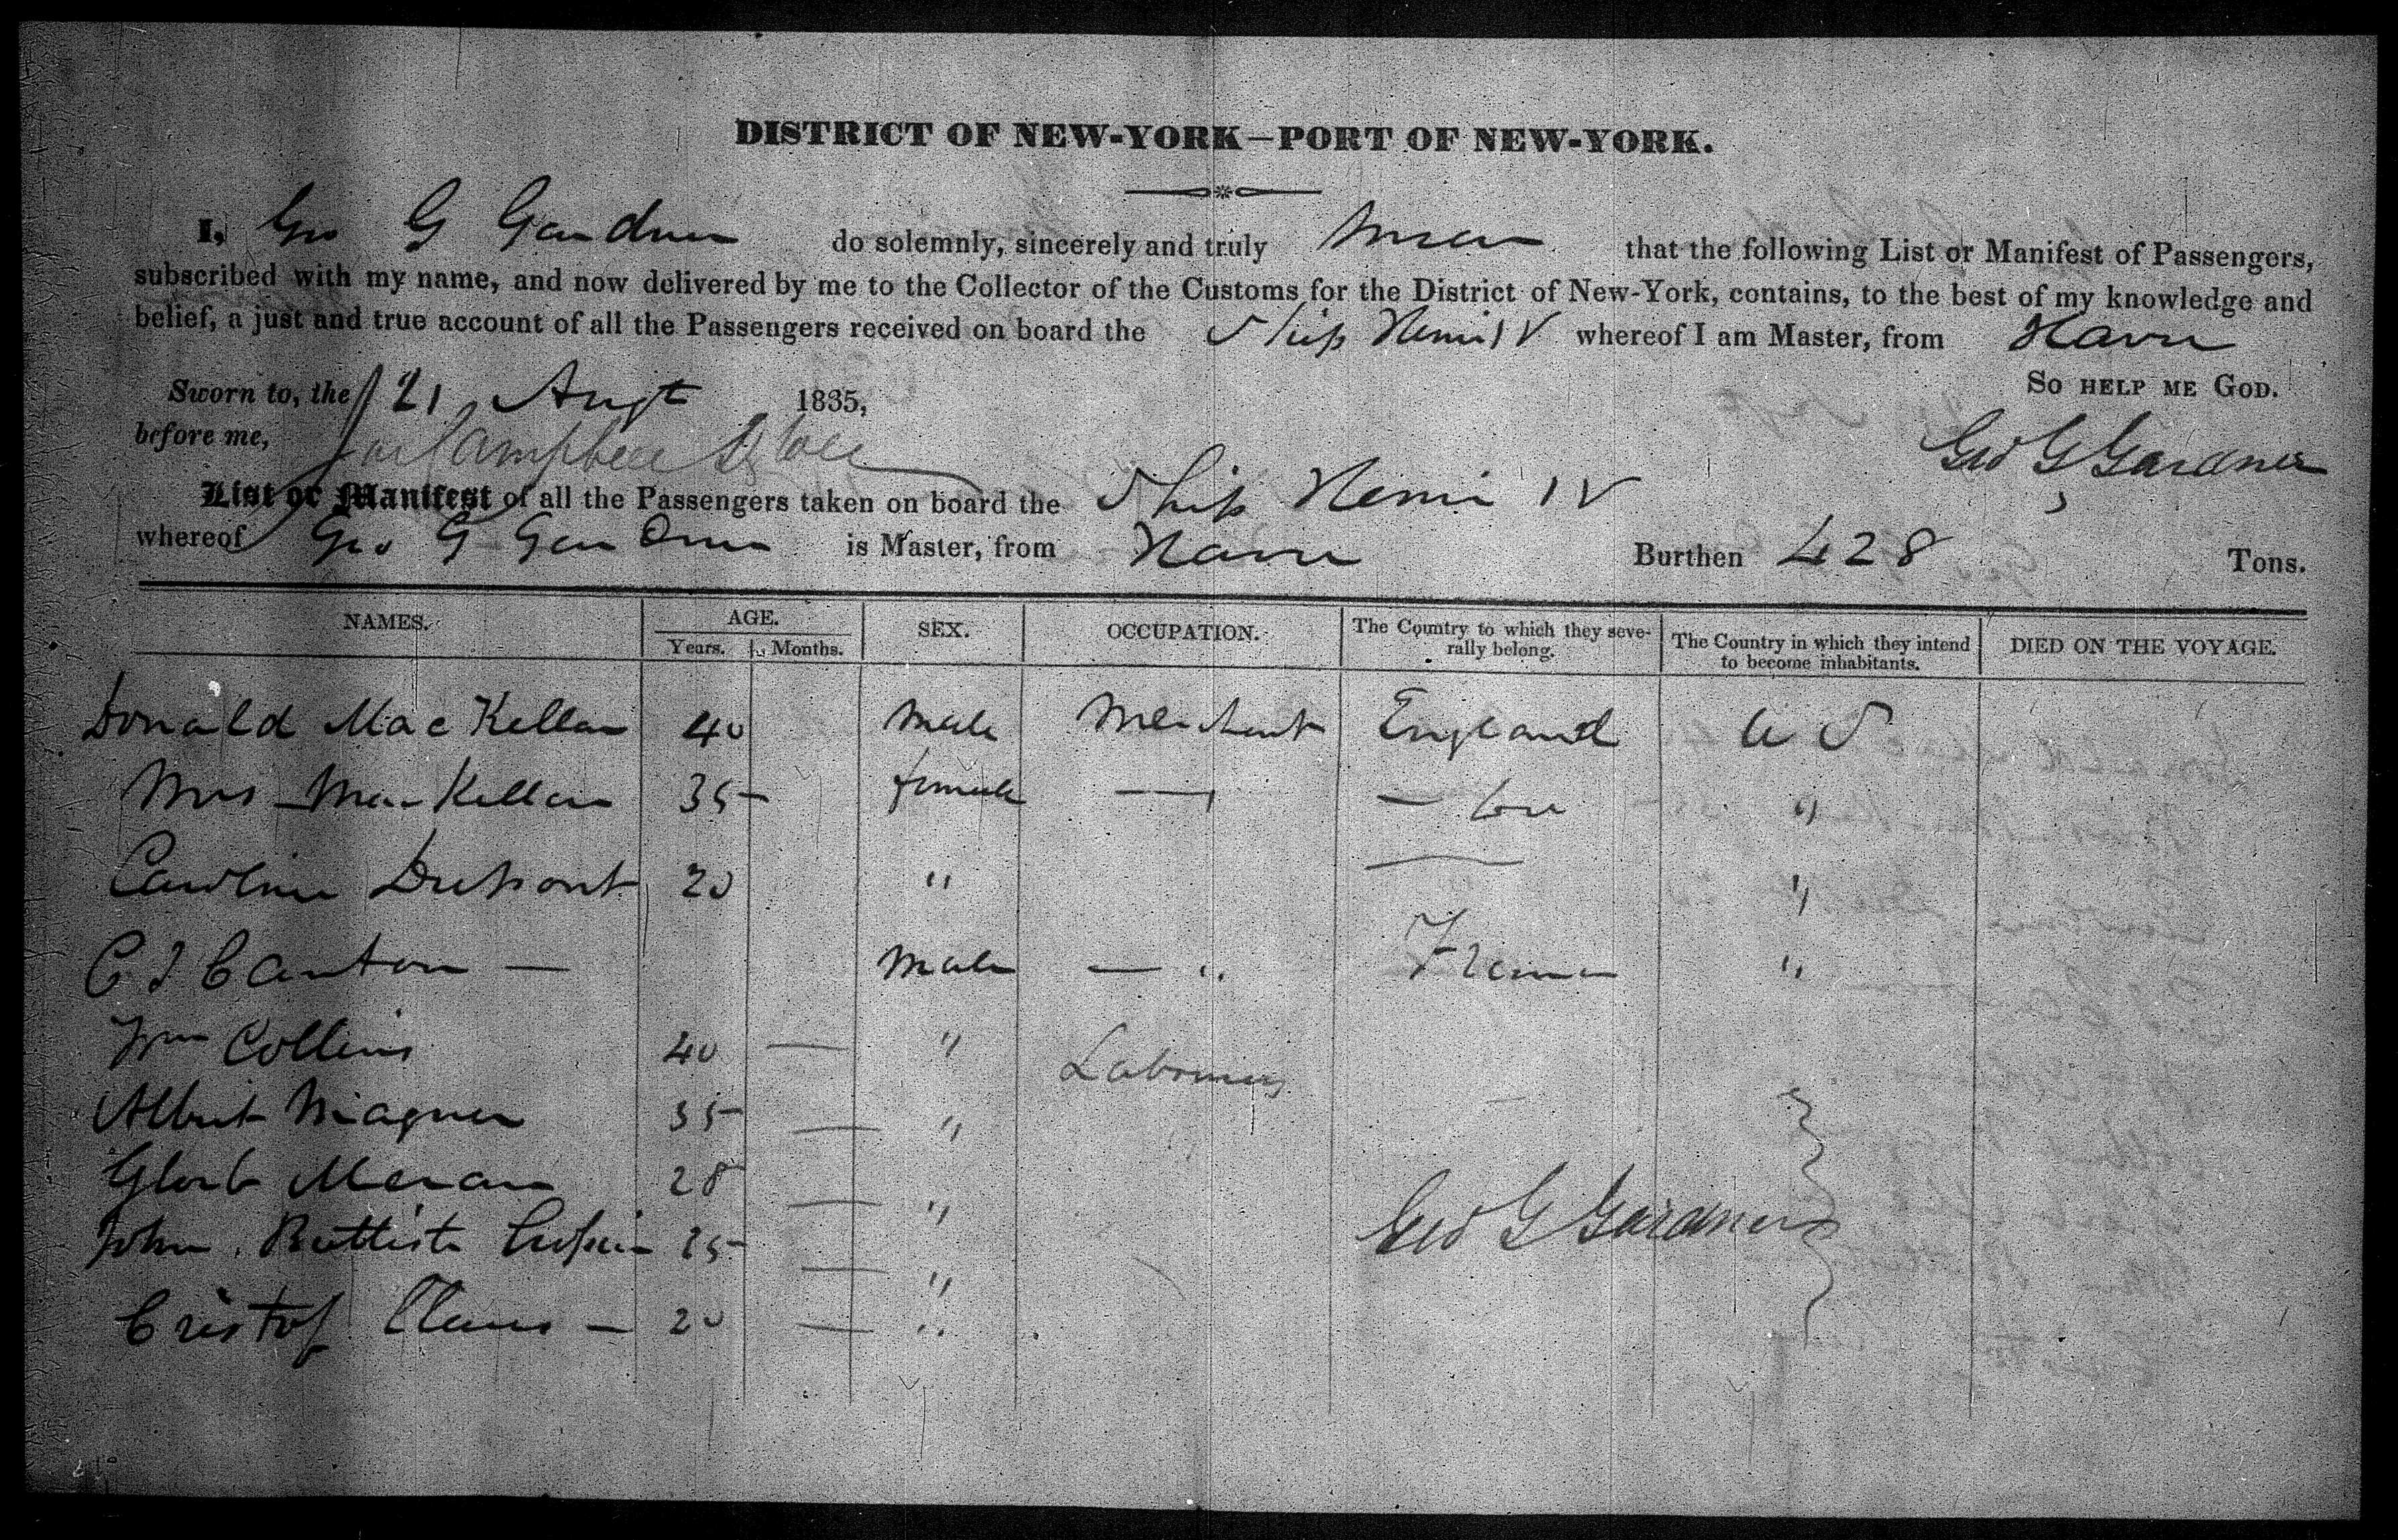 DISTRICT OF NEW-YORK—PORT OF NEW-YORK.
I, Geo G Gardner do solemnly, sincerely and truly swear that the following List or Manifest of Passengers,
subscribed with my name, and now delivered by me to the Collector of the Customs for the District of New-York, contains, to the best of my knowledge and
belief, a just and true account of all the Passengers received on board the Ship Henri IV whereof I am Master, from Havre
Sworn to, the 21 Augt 1835, So HELP ME GOD.
before me, Campbell Geo G Gardner
List or Manifest of all the Passengers taken on board the Ship Henri IV
whereof Geo G Gardner is Master, from Havre Burthen 428 Tons.
NAMES. AGE. Years. Months. SEX. OCCUPATION. The Country to which they seve-rally belong. The Country in which they intend to become inhabitants. DIED ON THE VOYAGE.
Donald Mac Kellar 40 Male Merchant England U S
Mrs Mac Kellar 35 female — — "
Caroline Dupont 20 " — "
C J Canton — Male — " "
Wm Collins 40 — " Labourers
Albert Wagner 35 — "
28 — "
John Battiste 25 — " Geo G Gardner
Cristof Claus — 20 — "